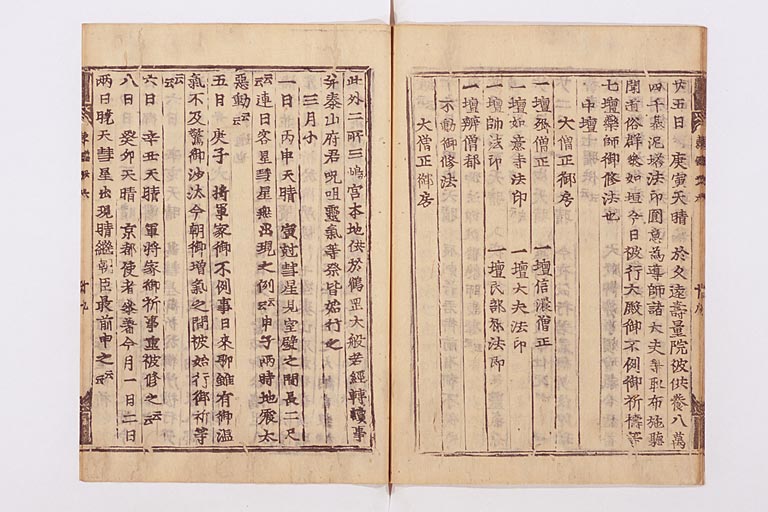 廿五日 庚寅天晴 於久遠壽量院被供養八萬
四千基泥塔法印圓意為導師諸大夫等取布施聽
聞道俗群衆如垣今日被行大殿御不例御祈禱等
七壇藥師御修法也
中壇
大僧正御房
一壇 僧正 一壇信濃僧正
一壇如意寺法印 一壇大夫法印
一壇師法印 一壇民部 法印
一壇 僧都
不動御修法
大僧正御房
此外二所三嶋宮本地供於鶴罡大般若經轉讀事
并泰山府君呪咀靈氣等祭皆始行之
三月小
一日 丙申天晴 寅尅彗星見室壁之間長二尺
云云連日客星彗星無出現之例云云申子兩時地震太
惡動云云
五日 庚子 將軍家御不例事日來聊雖有御温
氣不及驚御沙汰今朝御増氣之間被始行御祈等
云云
六日 辛丑天晴 軍將家御祈事重被修之云云
八日 癸卯天晴 京都使者參著今月一日二日
兩日曉天彗星出現晴繼朝臣最前申之云云